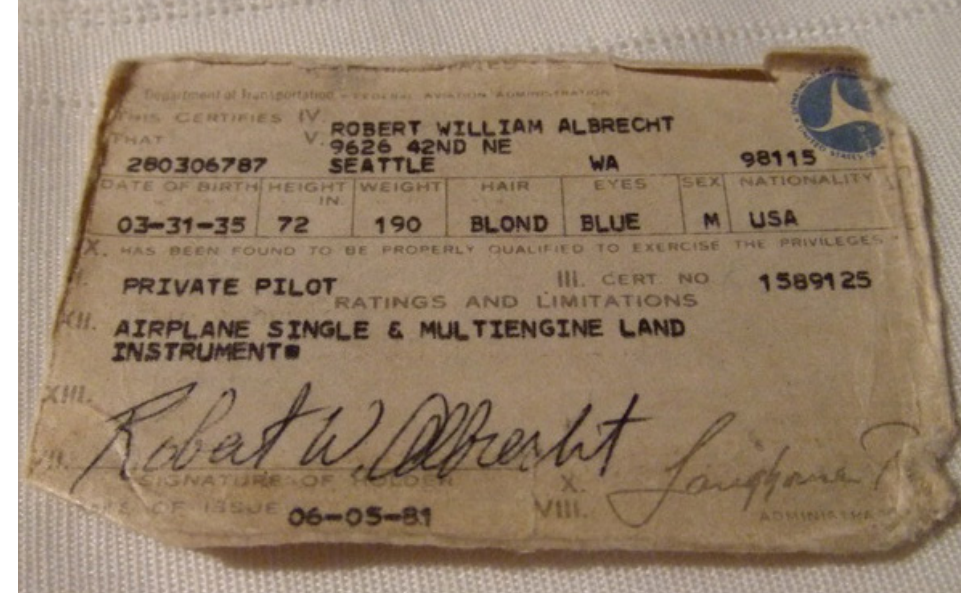 Department of Transportation - FEDERAL AVIATION ADMINISTRATION
THIS CERTIFIES IV. ROBERT WILLIAM ALBRECHT
THAT V. 9626 42ND NE
280306787 SEATTLE WA 98115
DATE OF BIRTH HEIGHT IN. WEIGHT HAIR EYES SEX NATIONALITY
03-31-35 72 190 BLOND BLUE M USA
X. HAS BEEN FOUND TO BE PROPERLY QUALIFIED TO EXERCISE THE PRIVILEGES
PRIVATE PILOT III. CERT. NO. 1589125
RATINGS AND LIMITATIONS
XII. AIRPLANE SINGLE & MULTIENGINE LAND
INSTRUMENT
XIII.
Robert W. Albrecht
SIGNATURE OF HOLDER X.
OF ISSUE 06-05-81 VIII.